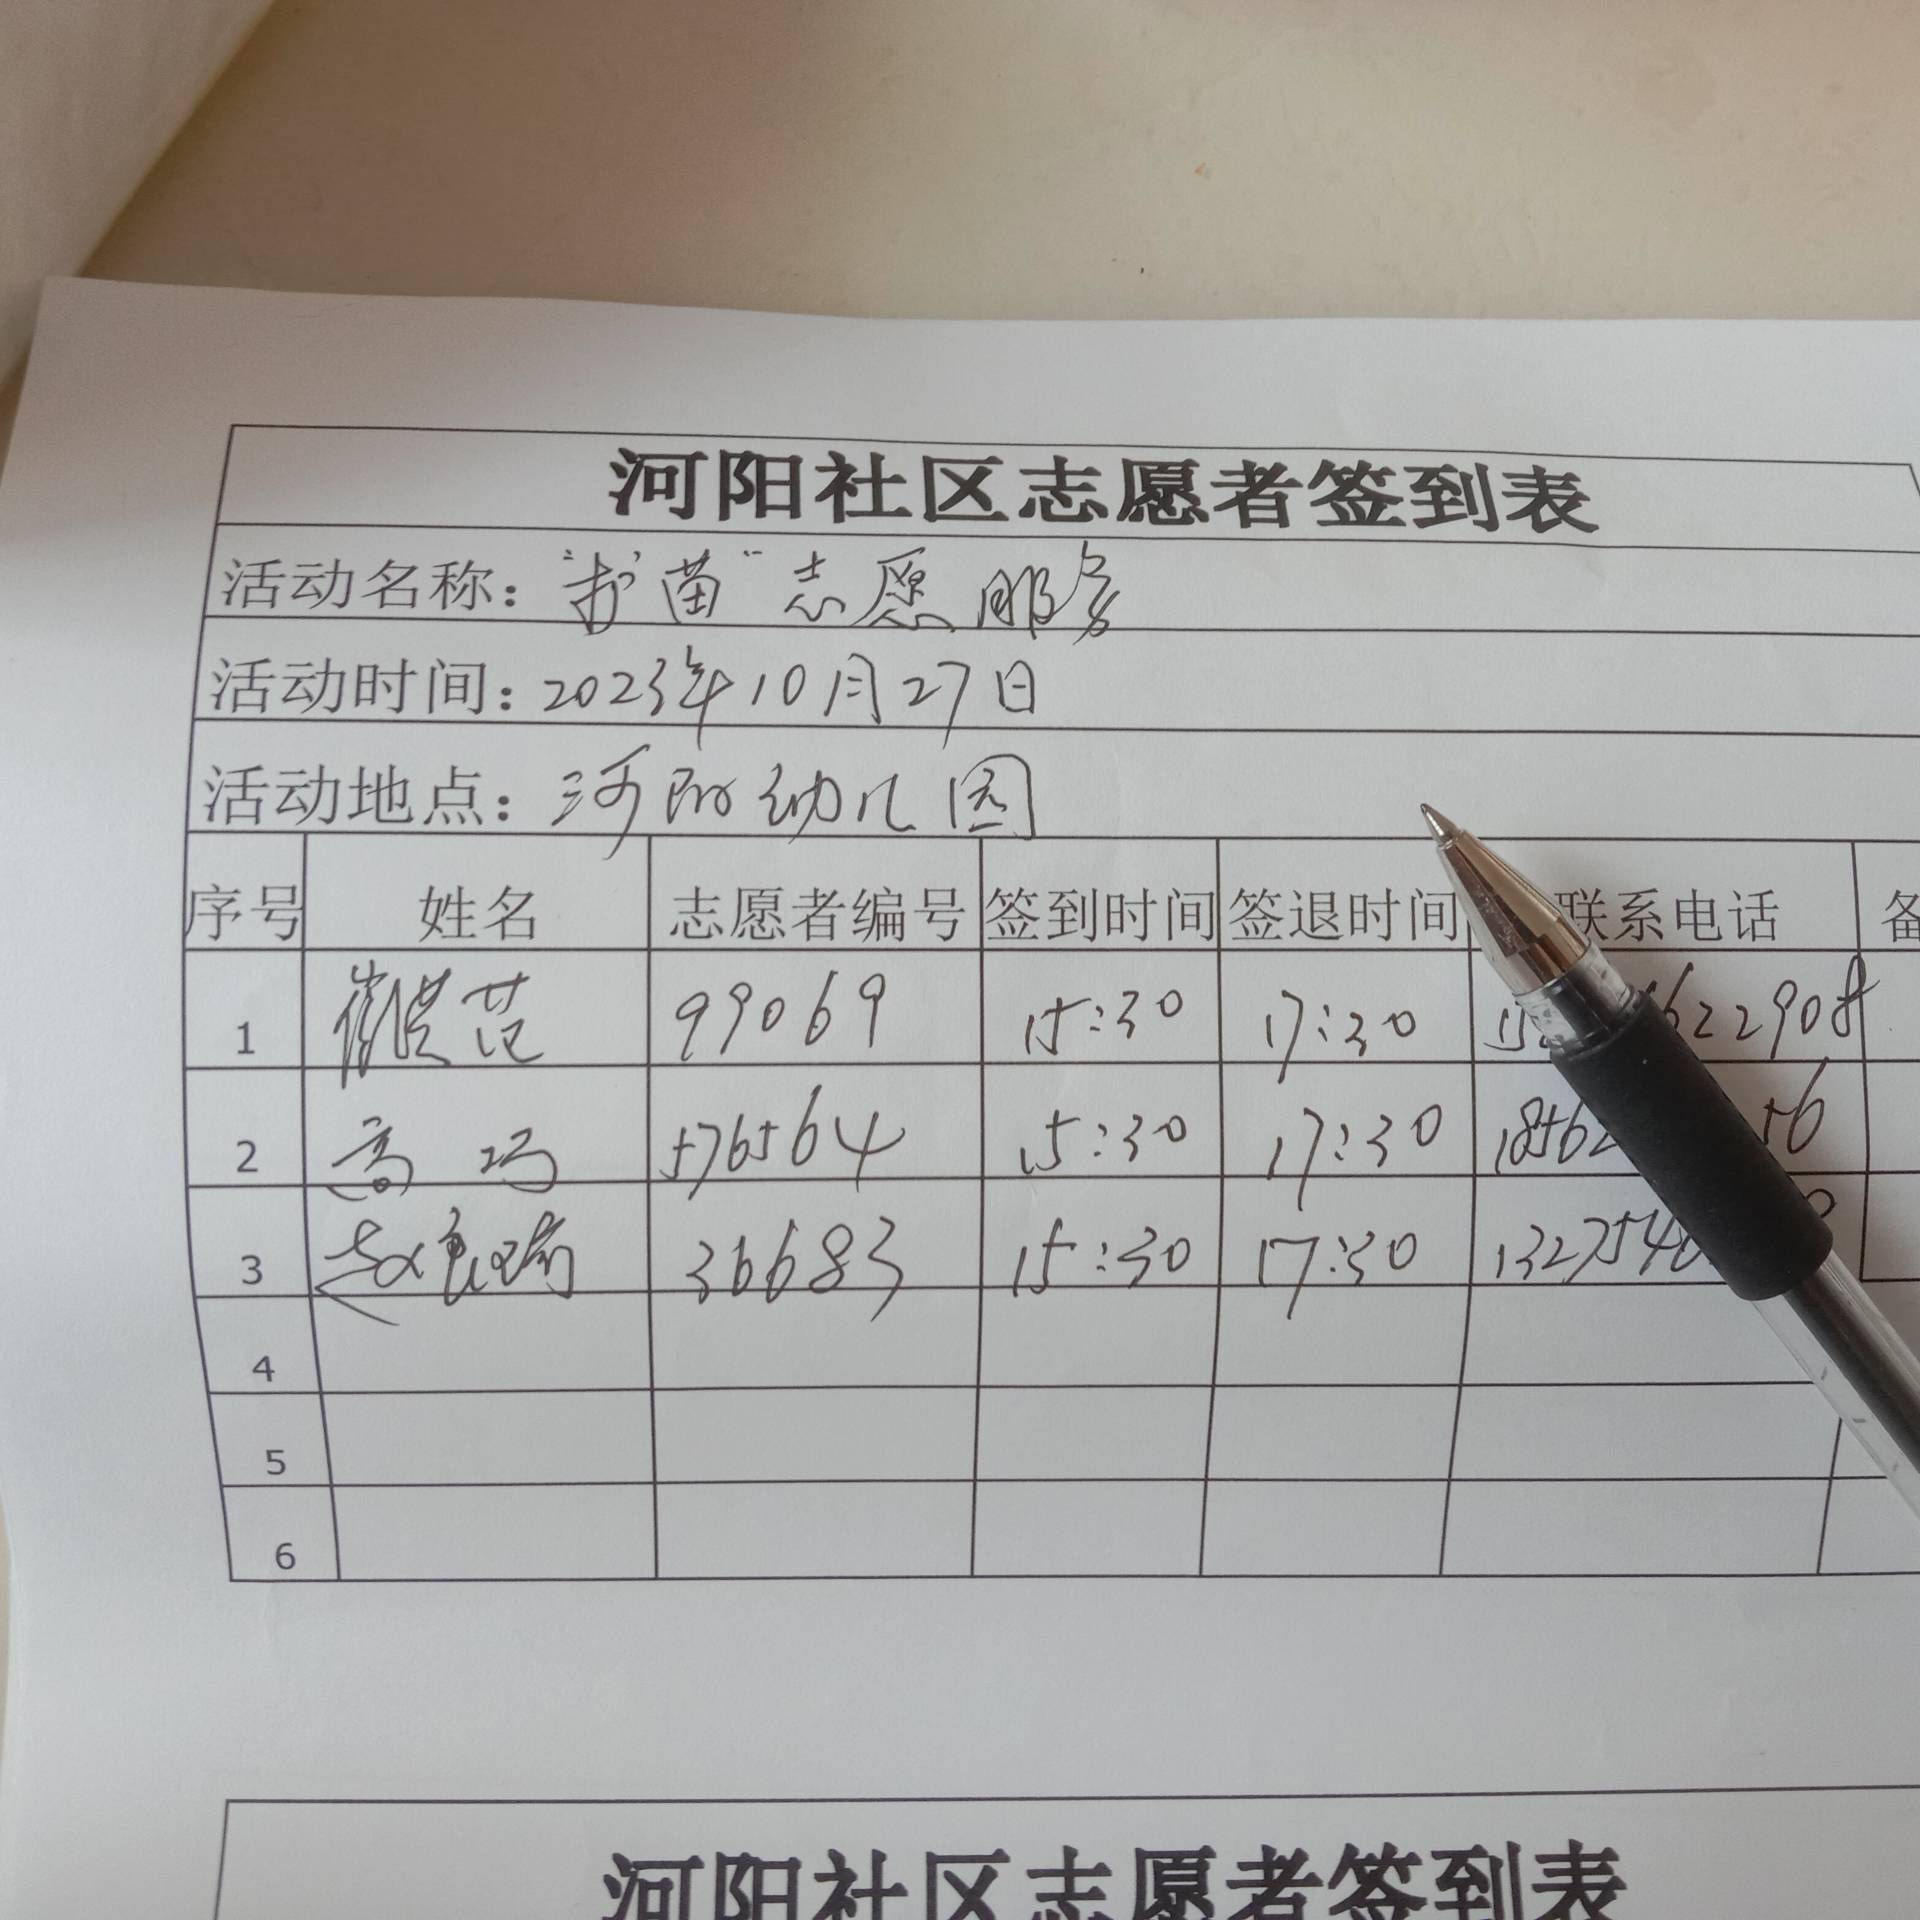 河阳社区志愿者签到表
活动名称：“护苗”志愿服务
活动时间：2023年10月27日
活动地点：河阳幼儿园
序号 姓名 志愿者编号 签到时间 签退时间 联系电话 备
1 崔洪范 99069 15:30 17:30 622908
2 高巧 576564 15:30 17:30 18562 56
3 赵良瑜 36683 15:30 17:30 132754
4
5
6
河阳社区志愿者签到表